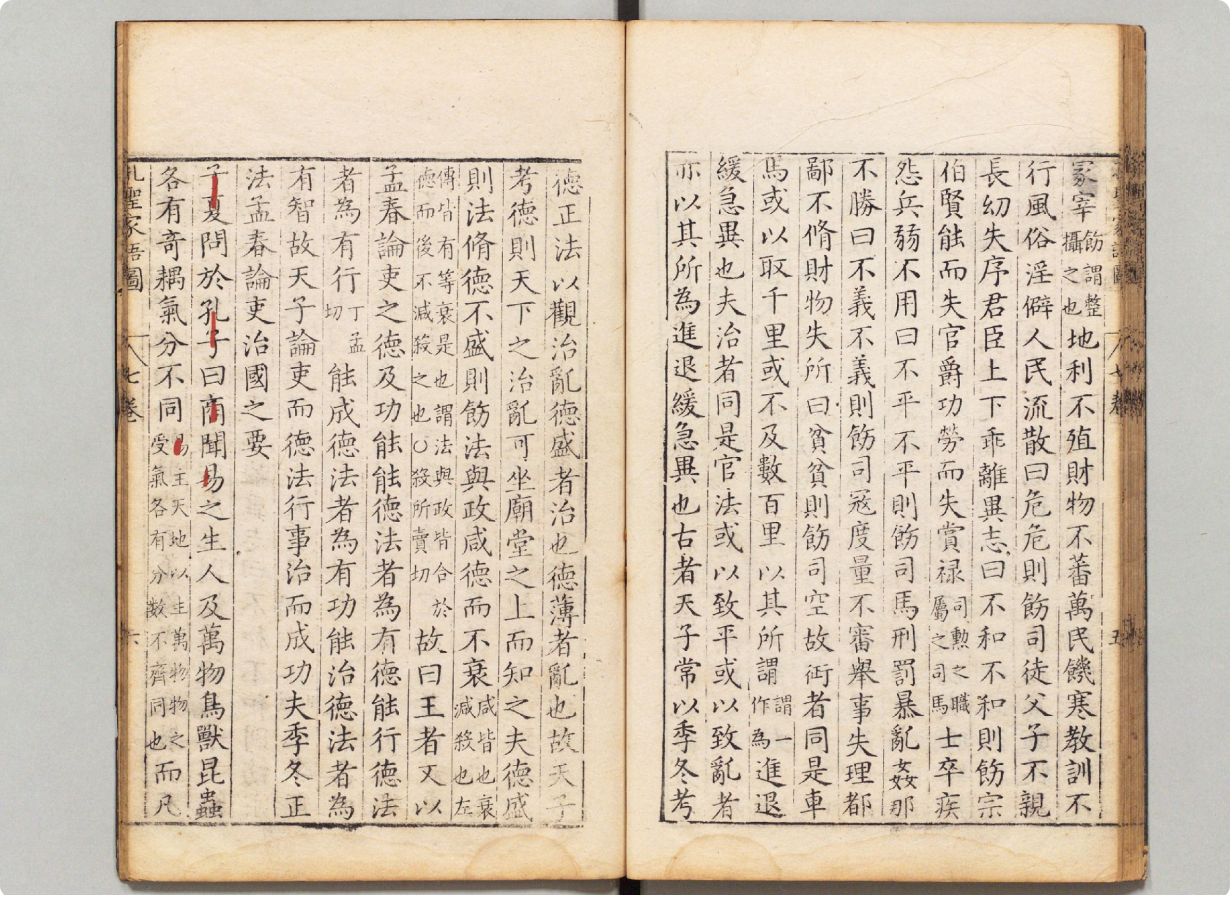 冢宰飭謂整攝之也地利不殖財物不蕃萬民饑寒教訓不
行風俗淫僻人民流散曰危危則飭司徒父子不親
長幼失序君臣上下乖離異志曰不和不和則飭宗
伯賢能而失官爵功勞而失賞祿司勲之職屬之司馬士卒疾
怨兵弱不用曰不平不平則飭司馬刑罰暴亂姦邪
不勝曰不義不義則飭司冦度量不審舉事失理都
鄙不脩財物失所曰貧貧則飭司空故御者同是車
馬或以取千里或不及數百里以其所謂謂一作為進退
緩急異也夫治者同是官法或以致平或以致亂者
亦以其所為進退緩急異也古者天子常以季冬考
德正法以觀治亂德盛者治也德薄者亂也故天子
考德則天下之治亂可坐廟堂之上而知之夫德盛
則法脩德不盛則飭法與政咸德而不衰咸皆也衰減殺也左
傳皆有等衰是也謂法與政皆合於德而後不減殺之也〇殺所賣切故曰王者又以
孟春論吏之德及功能能德法者為有德能行德法
者為有行丁孟切能成德法者為有功能治德法者為
有智故天子論吏而德法行事治而成功夫季冬正
法孟春論吏治國之要
子夏問於孔子曰商聞易之生人及萬物鳥獸昆蟲
各有奇耦氣分不同易主天地以生萬物物之受氣各有分數不齊同也而凡
孔聖家語圖 八 七卷 六